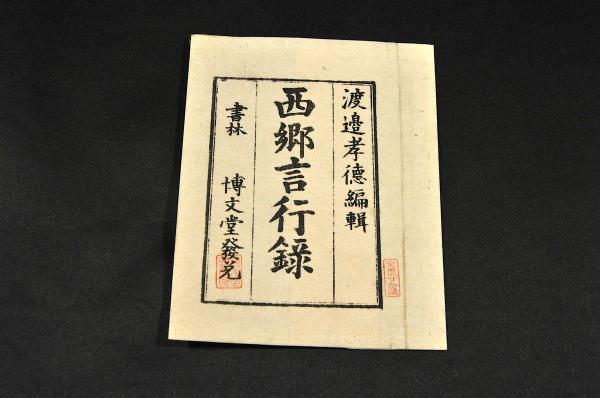 渡邉孝德編輯
西郷言行録
書林 博文堂發兌